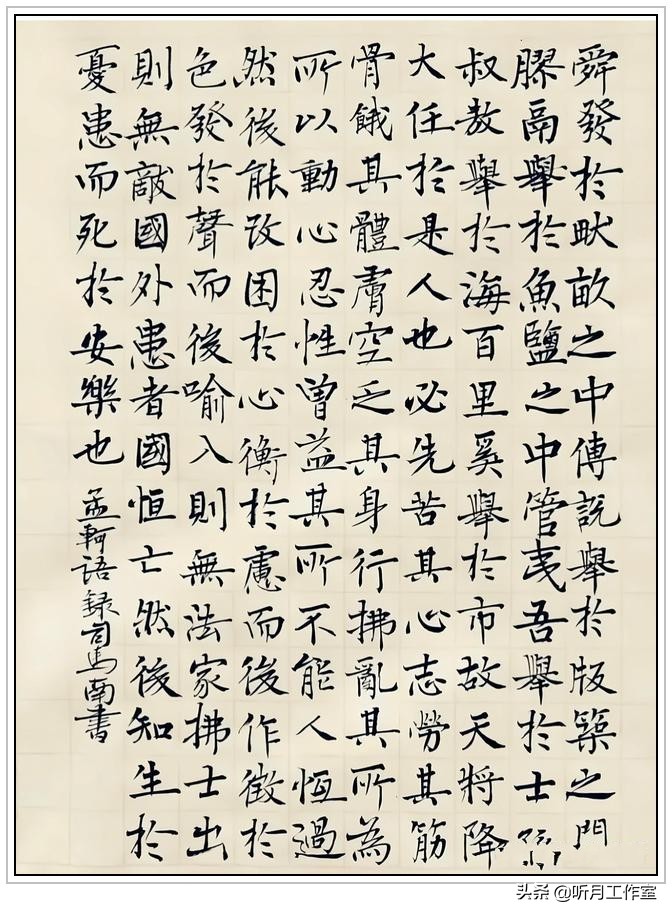 舜發於畎畝之中傅說舉於版築之門
膠鬲舉於魚鹽之中管夷吾舉於士
叔敖舉於海百里奚舉於市故天將降
大任於是人也必先苦其心志勞其筋
骨餓其體膚空乏其身行拂亂其所為
所以動心忍性曾益其所不能人恆過
然後能改困於心衡於慮而後作徵於
色發於聲而後喻入則無法家拂士出
則無敵國外患者國恒亡然後知生於
憂患而死於安樂也 孟軻語錄司馬南書
头条 @听月工作室